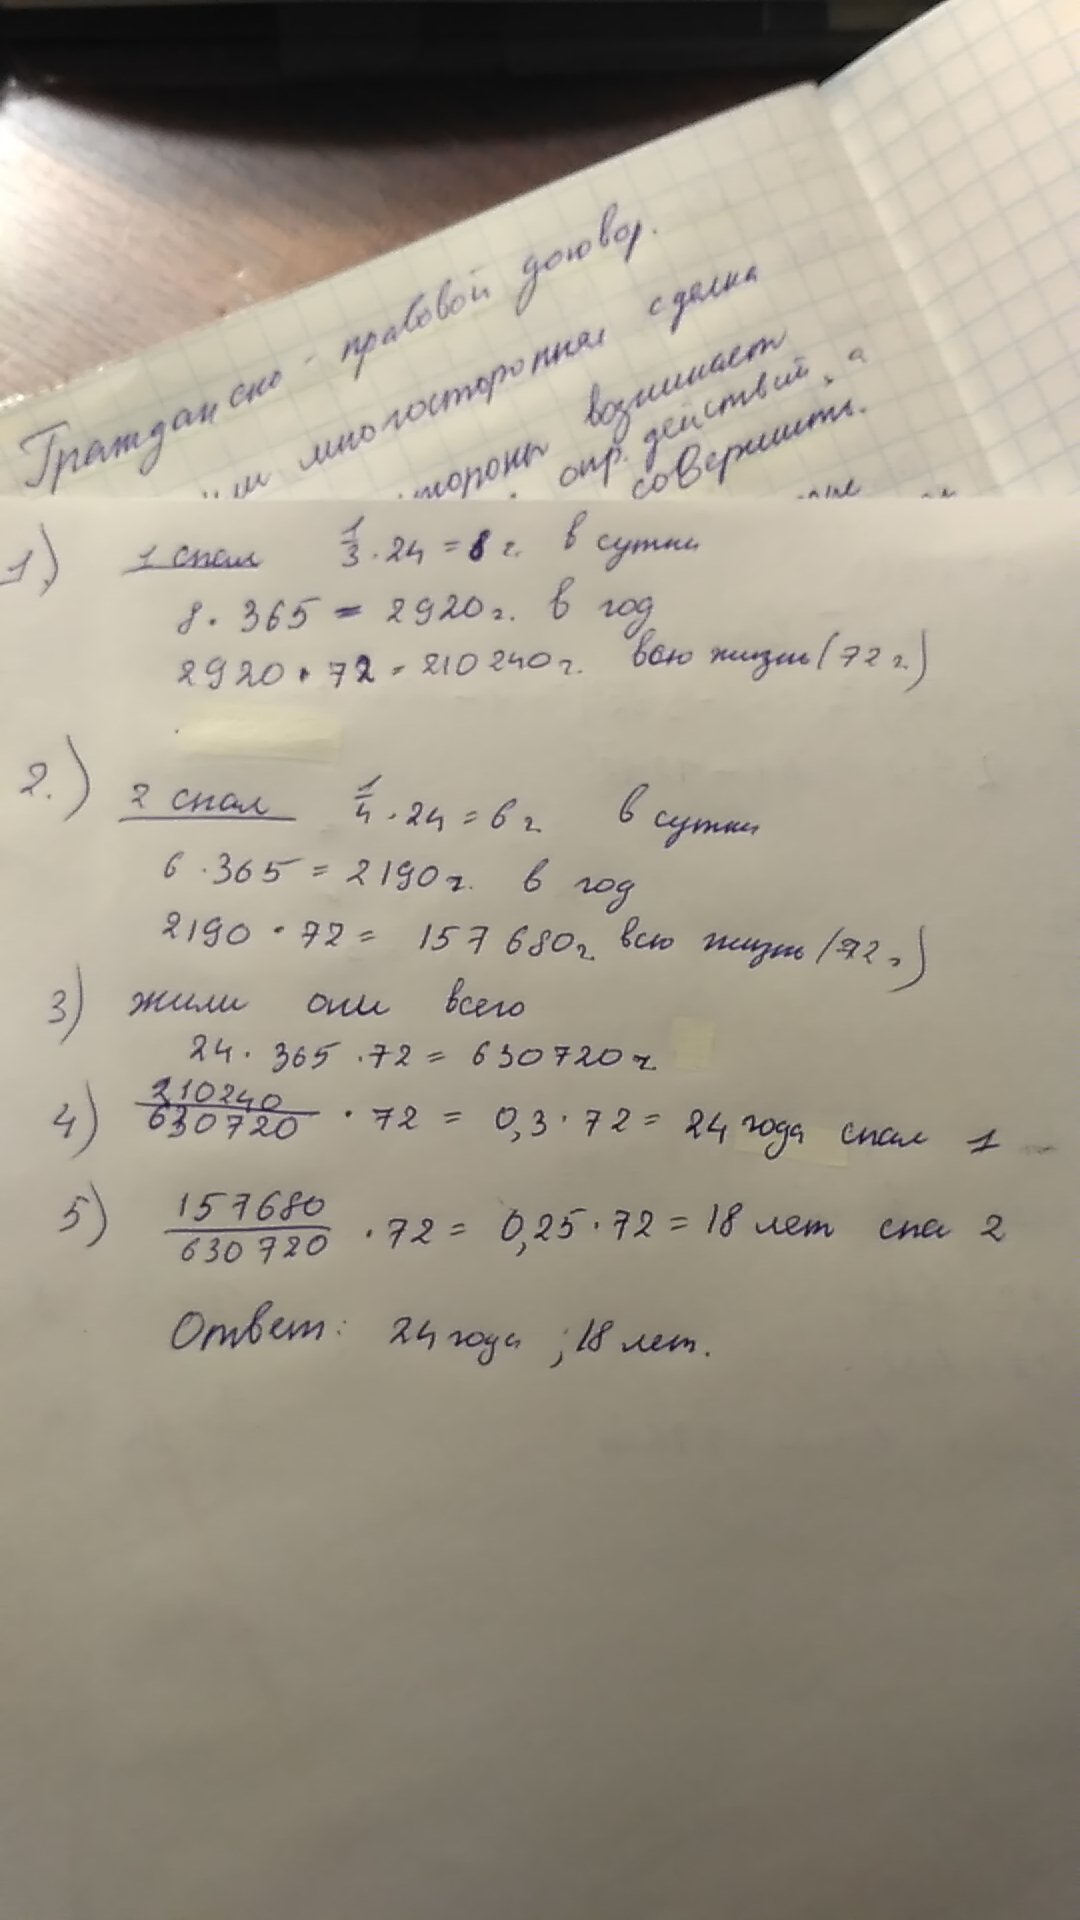 Гражданско - правовой договор.
многосторонняя сделка
стороны возникает
опр. действий, а
совершить.
1) 1 спал 1/3 · 24 = 8 ч. в сутки
8 · 365 = 2920 ч. в год
2920 · 72 = 210240 ч. всю жизнь (72 г.)
2.) 2 спал 1/4 · 24 = 6 ч. в сутки
6 · 365 = 2190 ч. в год
2190 · 72 = 157680 ч. всю жизнь (72 г.)
3) жили они всего
24 · 365 · 72 = 630720 ч.
4) 210240/630720 · 72 = 0,3 · 72 = 24 года спал 1
5) 157680/630720 · 72 = 0,25 · 72 = 18 лет спал 2
Ответ: 24 года ; 18 лет.